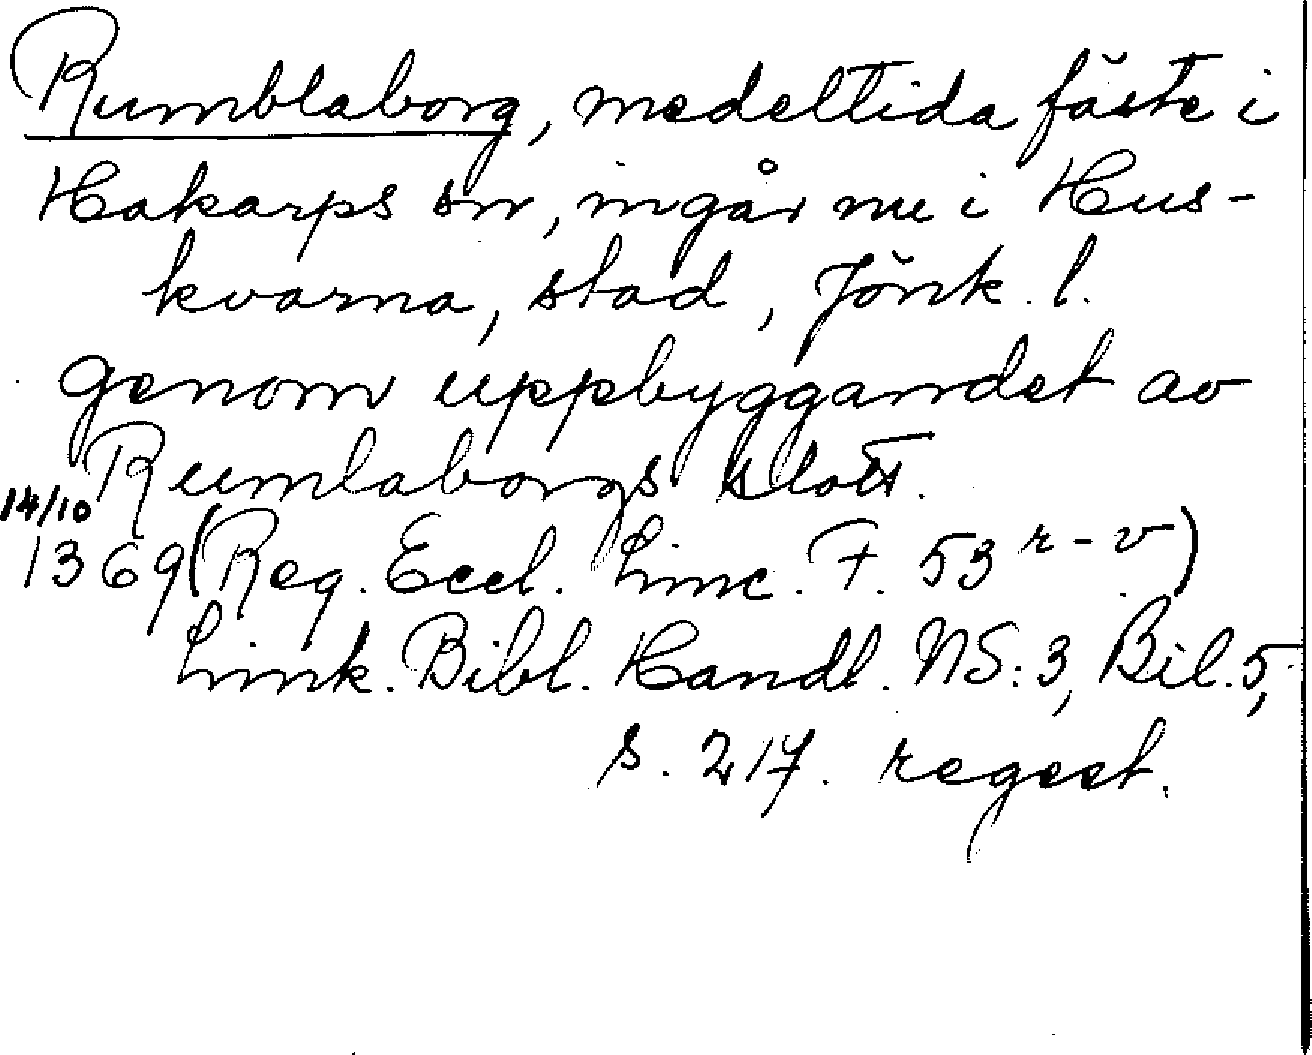 Rumblaborg, medeltida fäste i
Hakarps sn, ingår nu i Hus-
kvarna, stad, Jönk. l.
genom uppbyggandet av
Rumlaborgs slott.
14/10
1369 (Reg. Eccl. Linc. F. 53 r-v)
Link. Bibl. Handl. NS: 3, Bil. 5,
s. 217. regest.